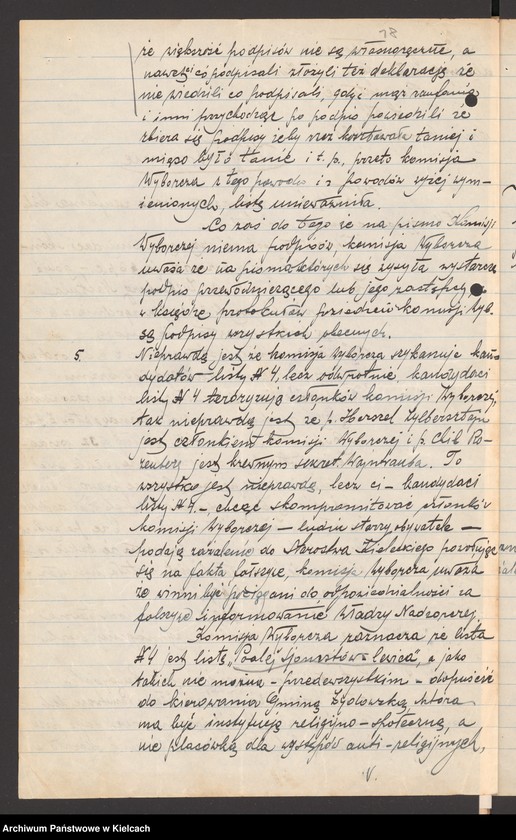 18
że większość podpisów nie są własnoręczne, a
nawet ci co podpisali złożyli też deklarację że
nie wiedzili co podpisali, gdyć mąż zaufania
i inni przychodząc po podpis powiedzili że
zbiera się podpisy żeby rzeź kosztowała taniej i
mięso było tanie i t. p., przeto komisja
Wyborcza z tego powodu i z powodów wyżej wym-
ienionych, listę unieważniła.
Co zaś do tego że na pismo Komisji
Wyborczej niema podpisów, komisja Wyborcza
uważa że na pisma których się wysyła wystarcza
podpis przewodniczącego lub jego zastępcy, a
w księdze protokułów posiedzeń komisji Wyb.
są podpisy wszystkich obecnych.
5. Nieprawdą jest że komisja wyborcza szykanuje kan-
dydatów listy № 4, lecz odwrotnie kandydaci
listy № 4 teroryzują członków komisji Wyborczej,
tak nieprawdą jest że p. Herszel Zylbersztajn
jest członkiem komisji Wyborczej i p. Chil Ro-
zenberg jest krewnym sekret. Wajntrauba. To
wszystko jest nieprawdą, lecz ci - kandydaci
listy № 4. - chcąc skompromitować członków
komisji Wyborczej - ludzi starzy obywatele -
podają zażalenie do Starostwa Kieleckiego powołując
się na fakta fałszywe, komisja Wyborcza uważa
że winni być pociągani do odpowiedzialności za
fałszywe informowanie Władzy Nadzorczej.
Komisja Wyborcza zaznacza, że lista
№ 4 jest listą "Poalej Sjonistów lewica", a jako
takich nie można - przedewszystkim - dopuścić
do kierowania Gminą Żydowską, która
ma być instytucją religijno-społeczną, a
nie placówką dla występów anti-religijnych,
Archiwum Państwowe w Kielcach